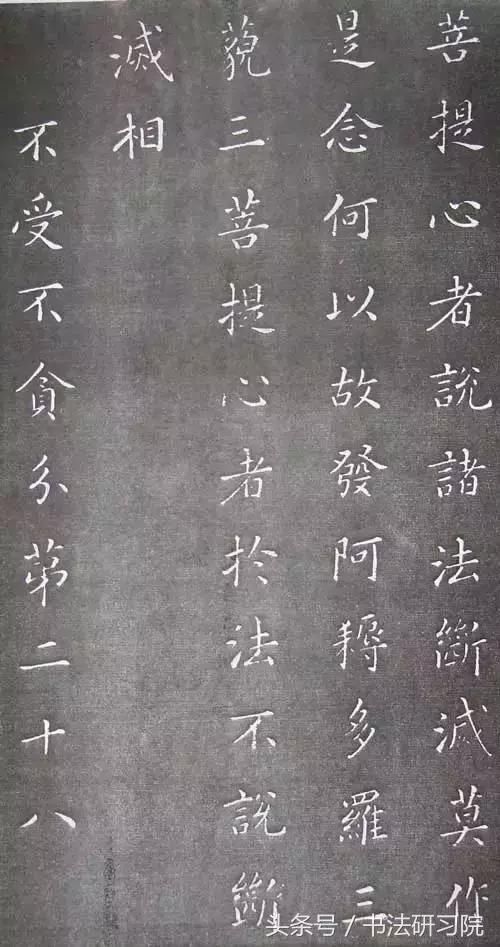 菩提心者說諸法斷滅莫作
是念何以故發阿耨多羅三
藐三菩提心者於法不說斷
滅相
不受不貪分第二十八
头条号/书法研习院